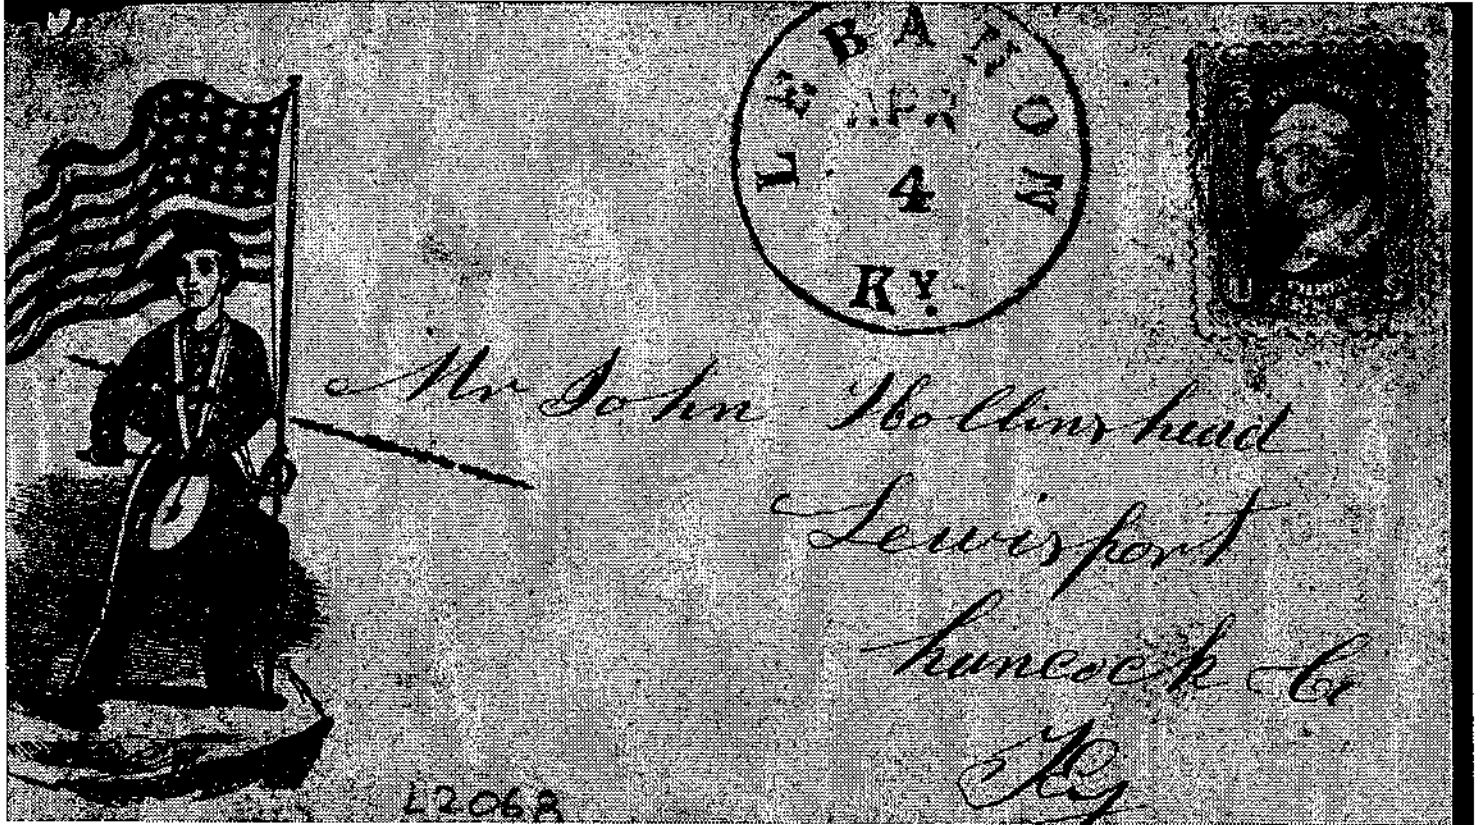 LEBANON
APR
4
KY.
Mr John Hollinshead
Lewisport
hancock Co
Ky
L2068